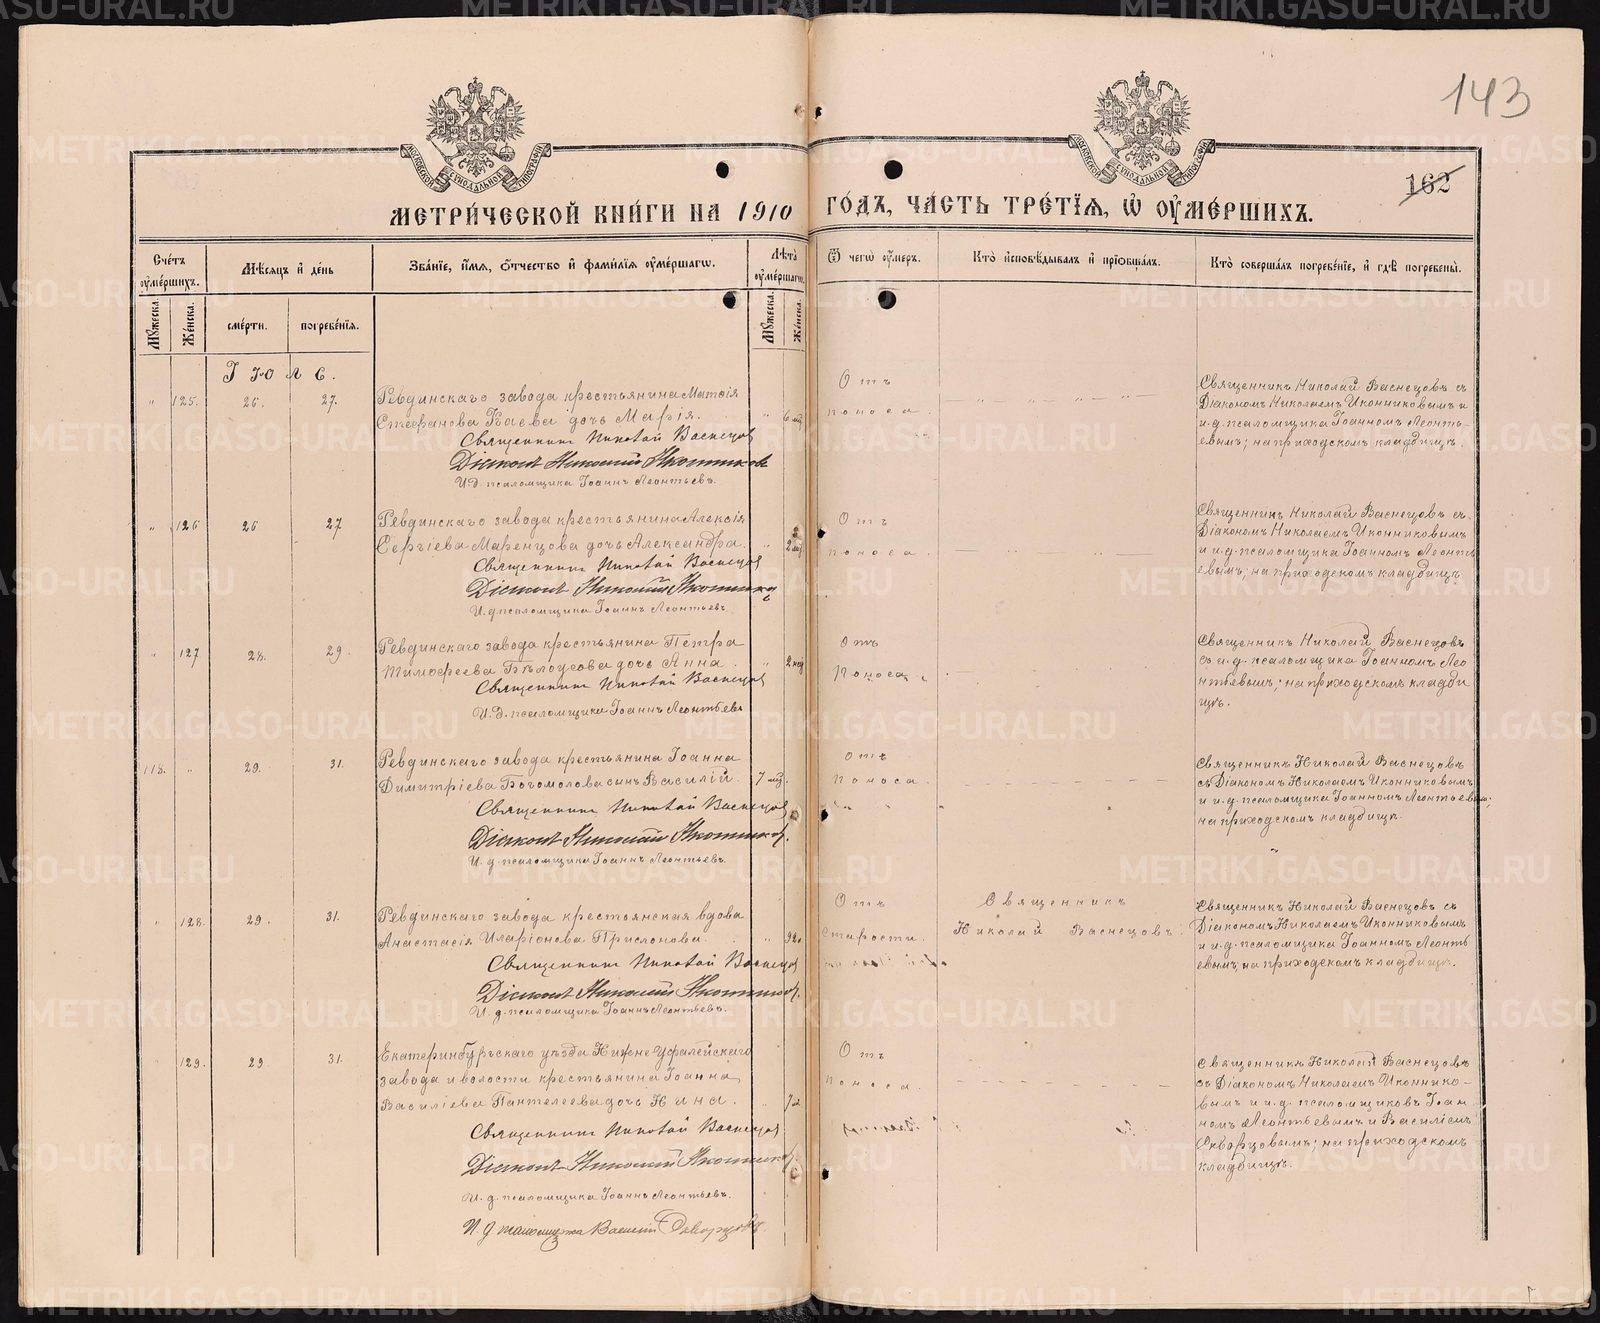 143
162
МЕТРИ́ЧЕСКОЙ КНИ́ГИ НА 1910 ГО́ДЪ, ЧА́СТЬ ТРЕ́ТІѦ, Ѡ҆ ОУ҆МЕ́РШИХЪ.
Сче́тъ оу҆ме́ршихъ.
Мѣсѧцъ и҆ де́нь
Зва́нїе, и҆́мѧ, ѻ҆́тчество и҆ фами́лїѧ оу҆ме́ршагѡ.
Лѣ́та оу҆ме́ршагѡ.
Ѿ чегѡ̀ оу҆́меръ.
Кто̀ и҆сповѣ́дывалъ и҆ прїѡбща́лъ.
Кто̀ соверша́лъ погребе́нїе, и҆ гдѣ̀ погребены̀.
Мꙋ́жеска.
Же́нска.
сме́рти.
погребе́нїѧ.
Мꙋ́жеска.
Же́нска.
Іюль.
" 125. 26. 27.
Ревдинскаго завода крестьянина Матѳія
Стефанова Каева дочь Марія. " 6 мц
Священникъ Николай Васнецов
Діаконъ Николай Иконников
И.д. псаломщика Іоаннъ Леонтьевъ.
Отъ
поноса
Священникъ Николай Васнецовъ съ
Діакономъ Николаемъ Иконниковымъ и
и.д. псаломщика Іоанномъ Леонть-
евымъ; на приходскомъ кладбищѣ.
" 126 26 27
Ревдинскаго завода крестьянина Алексія
Сергіева Маренцова дочь Александра. "
Священникъ Николай Васнецов
Діаконъ Николай Иконников
И.д. псаломщика Іоаннъ Леонтьевъ
Отъ
поноса.
Священникъ Николай Васнецовъ съ
Діакономъ Николаемъ Иконниковимъ
и и.д. псаломщика Іоанномъ Леонть
евымъ; на приходскомъ кладбищѣ
" 127 28. 29.
Ревдинскаго завода крестьянина Петра
Тимофеева Бѣлоусова дочь Анна. " 2 нед
Священникъ Николай Васнецов
И.д. псаломщика Іоаннъ Леонтьевъ
Отъ
Поноса.
Священникъ Николай Васнецовъ
съ и.д. псаломщика Іоанномъ Лео
нтьевымъ; на приходскомъ кладби
щѣ.
118. " 29. 31.
Ревдинскаго завода крестьянина Іоанна
Димитріева Богомолова сынъ Василій. 7 мц.
Священникъ Николай Васнецов
Діаконъ Николай Иконников.
И.д. псаломщика Іоаннъ Леонтьевъ.
Отъ
Поноса.
Священникъ Николай Васнецовъ
съ Діакономъ Николаемъ Иконниковымъ
и и.д. псаломщика Іоанномъ Леонтьевымъ;
на приходскомъ кладбищѣ.
" 128. 29. 31.
Ревдинскаго завода крестьянская вдова
Анастасія Иларіонова Прислонова. "
Священникъ Николай Васнецов
Діаконъ Николай Иконников.
И.д. псаломщика Іоаннъ Леонтьевъ.
Отъ
Старости.
Священникъ
Николай Васнецовъ
Священникъ Николай Васнецовъ съ
Діакономъ Николаемъ Иконниковымъ
и и.д. псаломщика Іоанномъ Леонть
евымъ, на приходскомъ кладбищѣ.
" 129. 29 31.
Екатеринбургскаго уѣзда Нижне-Уфалейскаго
завода и волости крестьянина Іоанна
Василіева Пантелеева дочь Нина. "
Священникъ Николай Васнецов
Діаконъ Николай Иконников.
И.д. псаломщика Іоаннъ Леонтьевъ.
И.д псаломщика Василій Скворцовъ.
Отъ
поноса.
Священникъ Николай Васнецовъ
съ Діакономъ Николаемъ Иконнико-
вымъ и и.д. псаломщиковъ Іоан
номъ Леонтьевымъ и Василіемъ
Скворцовымъ; на приходскомъ
кладбищѣ.
METRIKI.GASO-URAL.RU